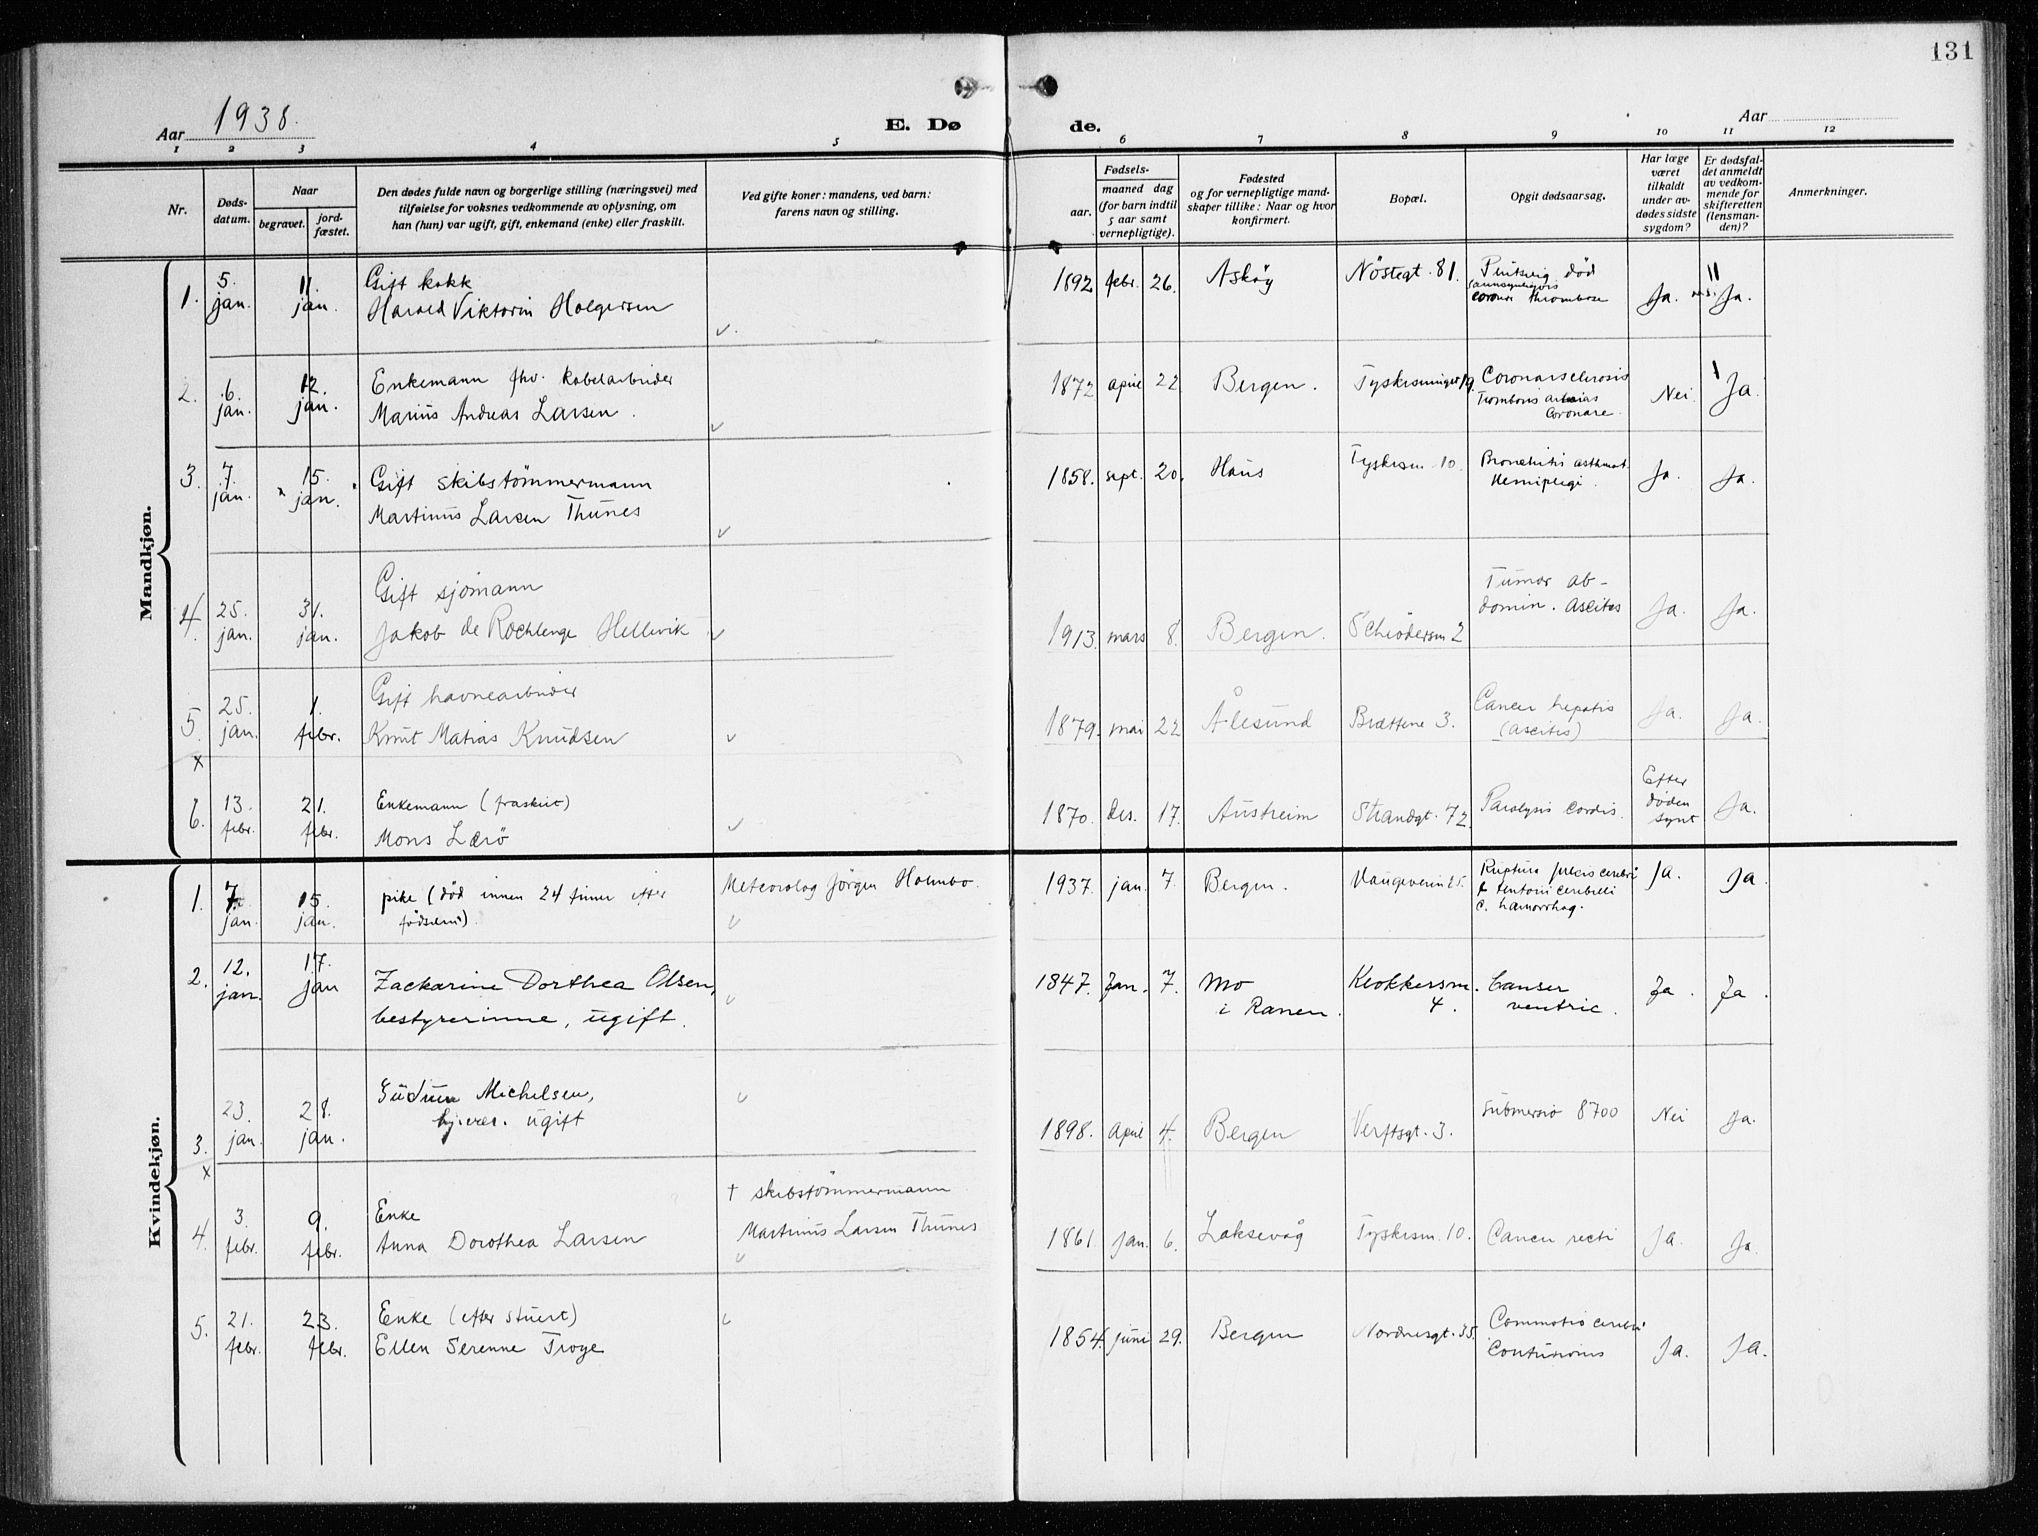 131
Aar 1938.
E. Døde.
Aar
1 2 3 4 5 6 7 8 9 10 11 12
Nr.
Døds-
datum.
Naar
begravet.
jord-
fæstet.
Den dødes fulde navn og borgerlige stilling (næringsvei) med
tilføielse for voksnes vedkommende av oplysning, om
han (hun) var ugift, gift, enkemand (enke) eller fraskilt.
Ved gifte koner: mandens, ved barn:
farens navn og stilling.
Fødsels-
aar.
maaned dag
(for barn indtil
5 aar samt
vernepligtige).
Fødested
og for vernepligtige mand-
skaper tillike: Naar og hvor
konfirmert.
Bopæl.
Opgit dødsaarsag.
Har læge
været
tilkaldt
under av-
dødes sidste
sygdom?
Er dødsfal-
det anmeldt
av vedkom-
mende for
skifteretten
(lensman-
den)?
Anmerkninger.
Mandkjøn.
1. 5. jan. 11. jan.
Gift kokk
Harald Viktorin Holgersen
1892 febr. 26. Askøy Nöstegt. 81.
Plutselig død
sannsynligvis
coronar thrombose
Ja. Ja.
2. 6. jan. 12. jan.
Enkemann fhv. kabelarbeider
Marius Andreas Larsen.
1872 april 22 Bergen. Tyskesmuget 19.
Coronarsclerosis
Trombosis arterias
Coronare.
Nei. Ja.
3. 7. jan. 15. jan.
Gift skibstømmermann
Martinus Larsen Thunes
1858. sept. 20. Haus Tyskesm. 10.
Bronchitis asthmat.
Hemiplegi.
Ja. Ja.
4. 25. jan. 31. jan.
Gift sjømann
Jakob de Rochlenge Hellevik
1913. mars 8. Bergen. Schrödersm 2
Tumor ab-
domin. Ascites
Ja. Ja.
5. 25. jan. 1. febr.
Gift havnearbeider
Knut Matias Knudsen
1879. mai 22 Ålesund Brattene 3.
Cancer hepatis
(Ascitis)
Ja. Ja.
x
6. 13. febr. 21. febr.
Enkemann (fraskilt)
Mons Lærö
1870. des. 17. Austreim Strandgt. 72.
Paralysis cordis.
Efter
døden
synt
Ja.
Kvindekjøn.
1. 7. jan. 15. jan.
pike (död innen 24 timer efter
födselen).
Meteorolog Jörgen Holmbo.
1937. jan. 7. Bergen. Haugeveien 25.
Ruptura falcis cerebri
& tentorii cerebelli
c. hämorrhag.
Ja. Ja.
2. 12. jan. 17. jan
Zackarine Dorthea Olsen,
bestyrerinne, ugift.
1847. Jan. 7. Mo
i Ranen.
Klokkersm.
4.
Canser
ventric.
Ja. Ja.
3. 23. jan. 28. jan.
Gudrun Michelsen,
ugift
1898. april 4. Bergen Verftsgt. 3.
Submersio 8700
Nei Ja.
x
4. 3. febr. 9. febr.
Enke
Anna Dorothea Larsen
† skibstömmermann
Martinus Larsen Thunes
1861. jan. 6. Laksevåg Tyskesm. 10. Cancer recti Ja. Ja.
5. 21. febr. 23. febr.
Enke (efter stuert)
Ellen Serenne Troye
1854. juni 29. Bergen Nordnesgt. 35.
Commotio cerebri
Contusionis
Ja. Ja.